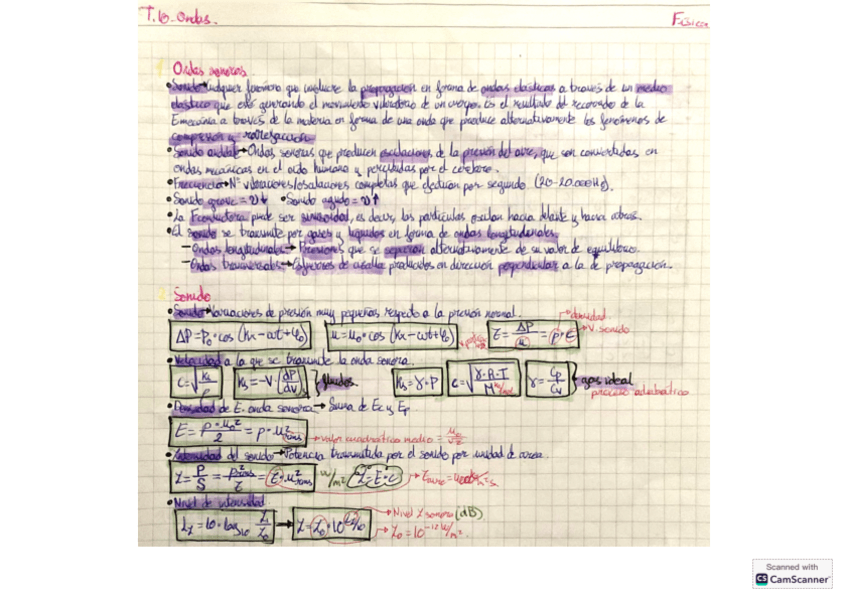 T.6-Ondas.
Física
1 Ondas sonoras
• Sonido→Cualquier fenómeno que involucre la propagación en forma de ondas elásticas a través de un medio
elástico que esté generando el movimiento vibratorio de un cuerpo. Es el resultado del recorrido de la
Emecánica a través de la materia en forma de una onda que produce alternativamente los fenómenos de
compresión y rarefacción.
• Sonido audible→Ondas sonoras que producen oscilaciones de la presión del aire, que son convertidas en
ondas mecánicas en el oído humano y percibidas por el cerebro.
• Frecuencia→Nº vibraciones/oscilaciones completas que efectúan por segundo (20-20.000Hz).
• Sonido grave = ν↓ • Sonido agudo = ν↑
• La puede ser sinusoidal, es decir, las partículas oscilan hacia delante y hacia atrás.
• El sonido se transmite por gases y líquidos en forma de ondas longitudinales.
— Ondas longitudinales→Presiones que se separan alternativamente de su valor de equilibrio.
— Ondas transversales→Esfuerzos de cizalla producidos en dirección perpendicular a la de propagación.
2 Sonido
• Sonido→Variaciones de presión muy pequeñas respecto a la presión normal.
→densidad
ΔP=P₀·cos (Kx-ωt+φ₀) μ=μ₀·cos (Kx-ωt+φ₀) Z=ΔP/μ=ρ·c →V. sonido
• Velocidad a la que se transmite la onda sonora.
c=√(Ks/ρ) Ks=-V(dP/dV)s } fluidos Ks=γ·P c=√(γ·R·T/M) γ=Cp/Cv } gas ideal
proceso adiabático
• Densidad de E. onda sonora→Suma de Ec y Ep
E=ρ·μ₀²/2=ρ·μ²rms →valor cuadrático medio=μ₀/√2
• Intensidad del sonido→Potencia transmitida por el sonido por unidad de área.
I=P/S=P²rms/Z=Z·μ²rms w/m² I=E·c
• Nivel de intensidad
→Nivel I sonora (dB)
L_I=10·log₁₀ I/I₀ → I=I₀·10^(L_I/10) →I₀=10⁻¹² W/m²
Scanned with
CS CamScanner